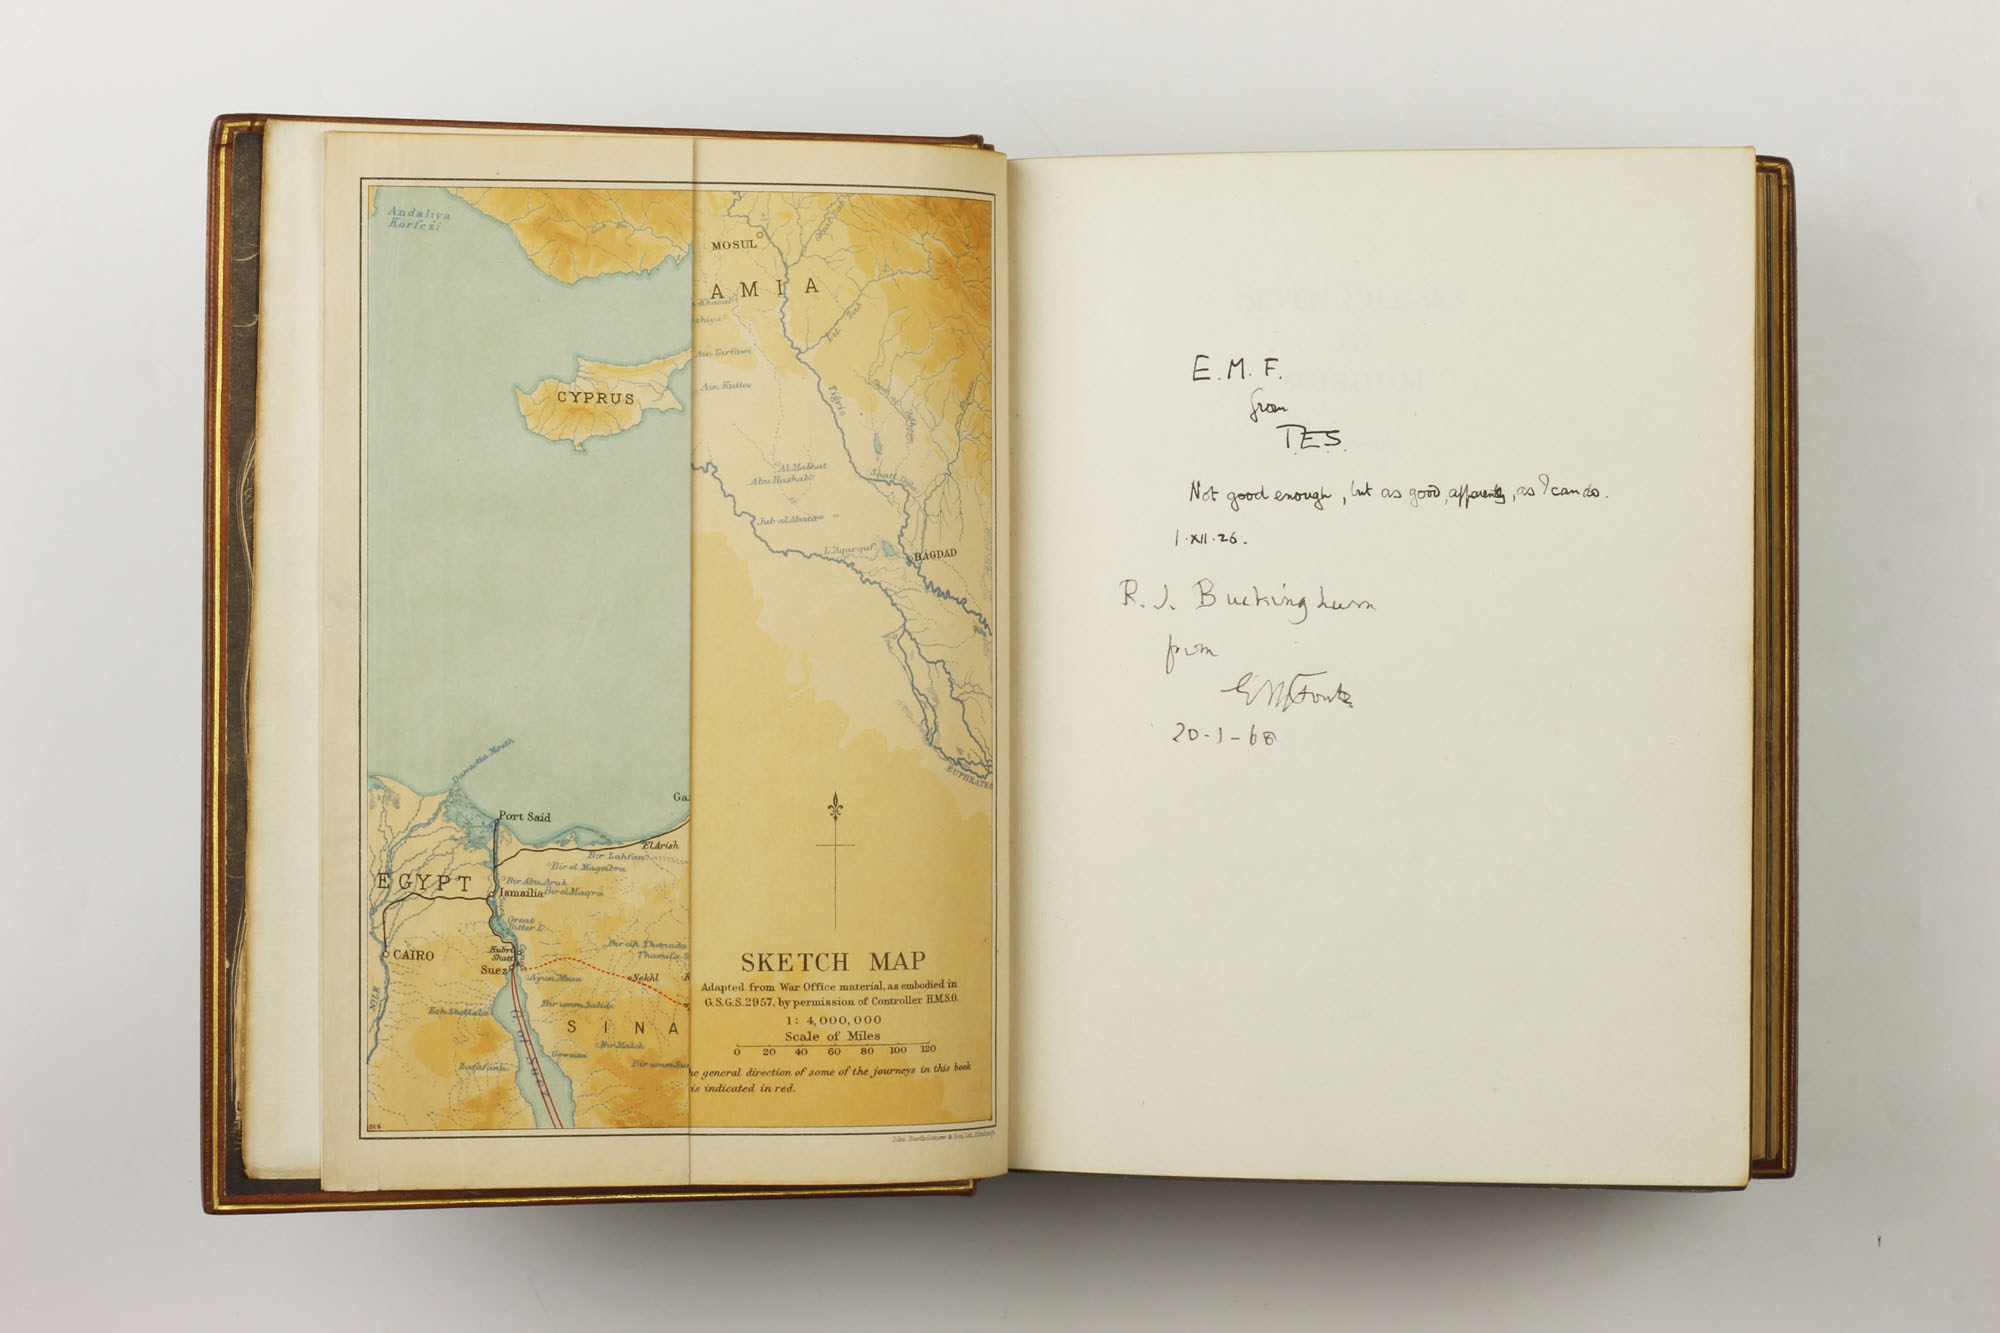 Andaliya
Korfezi
Gok Su
CYPRUS
Damietta Mouth
Port Said
Ga
El Arish
Bir Lahfan
Bir el Mageibra
EGYPT
Bir Abu Aruk
Ismailia
Bir el Maqra
Great
Bitter L.
Kubri
Shatt
Suez
CAIRO
NILE
Bir eth Themada
Thamila S
Ayun Musa
Nekhl
Bir umm Saiide
SINA
Bir Malek
Goweisa
Zafarana
G. of Suez
MOSUL
AMIA
Khasab
Ain Tarfawi
Ain Kutta
Lit. Zab
Tigris
Al Makhat
Abu Hashab
Jub al Abata
Shatt Diala
L'Aqarquf
BAGDAD
EUPHRATES
SKETCH MAP
Adapted from War Office material, as embodied in
G.S.G.S. 2957, by permission of Controller H.M.S.O.
1: 4,000,000
Scale of Miles
0 20 40 60 80 100 120
he general direction of some of the journeys in this book
is indicated in red.
John Bartholomew & Son, Ltd. Edinburgh
E. M. F.
from
T.E.S.
Not good enough, but as good, apparently, as I can do.
1.XII.26.
R. J. Buckingham
from
EMForster
20-1-68